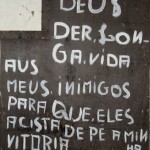 DEUS
DER, LON-
GA, VIDA
AUS
MEUS, INIMIGOS
PARA, QUE, ELES
ACISTA, DE PE A MIN
VITORIA HA